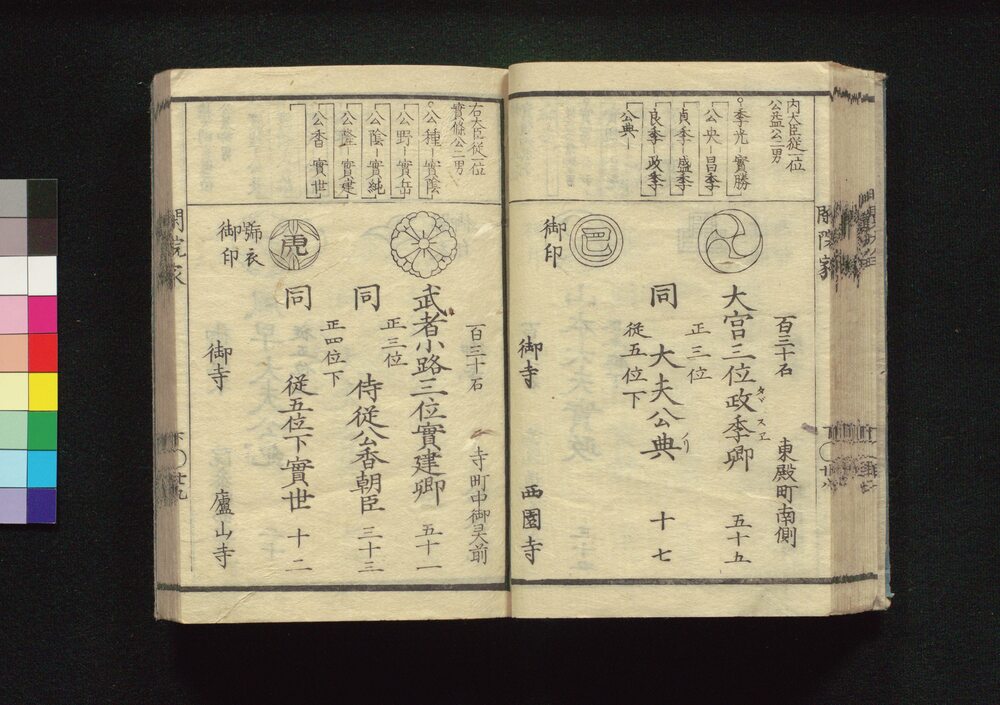 内大臣従一位
公益公二男
○季光－實勝
公央－昌季
貞季－盛季
良季－政季
公典－
百三十石 東殿町南側
大宮三位政季卿 五十五
タヾスヱ
正三位
同 大夫公典 十七
ノリ
従五位下
御印
御寺 西園寺
閑院家
右大臣従一位
實條公二男
○公種－實陰
公野－實岳
公陰－實純
公隆－實建
公香－實世
百三十石 寺町中御灵前
武者小路三位實建卿 五十一
正三位
同 侍従公香朝臣 三十三
正四位下
同 従五位下實世 十二
虎
號衣
御印
御寺 廬山寺
閑院家
下〇廿九